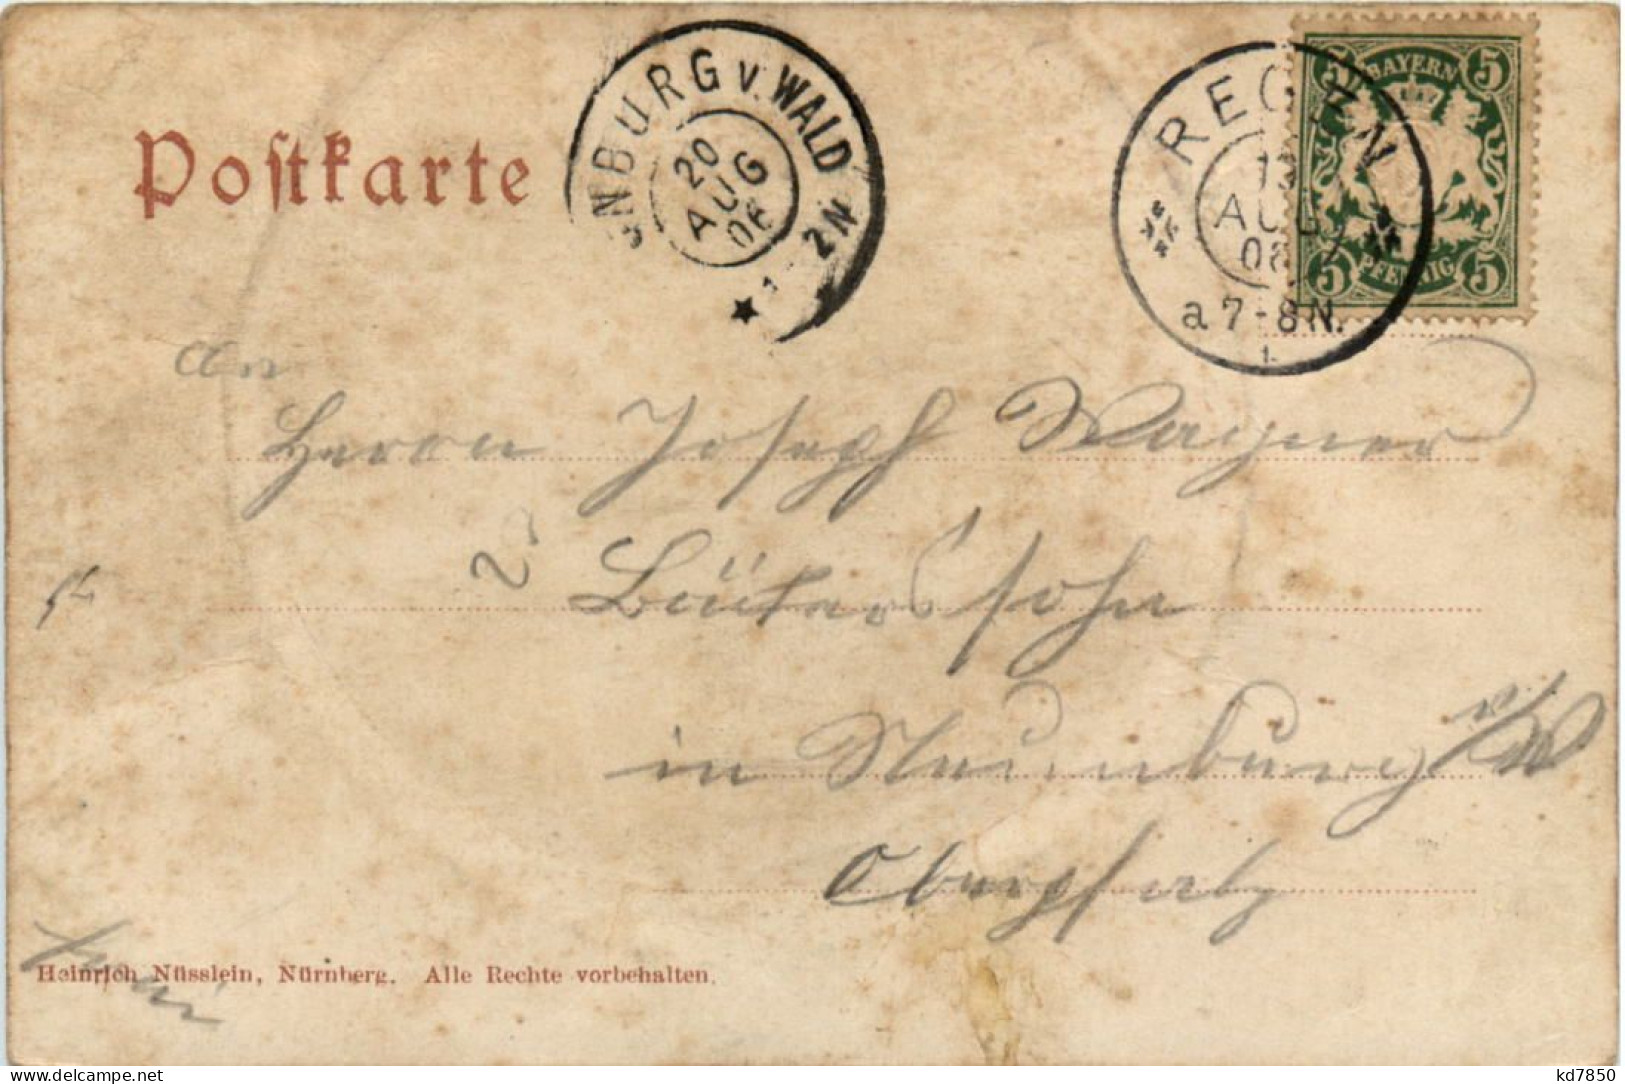 Postkarte
NBURG v. WALD
20
AUG
06
1-2N
REGEN
13
AUG
06
a 7-8 N.
1.
BAYERN
5 5
5 PFENNIG 5
An
Herrn Joseph Wagner
Bäckerssohn
in Neunburg v/W
Oberpfalz
Heinrich Nüsslein, Nürnberg. Alle Rechte vorbehalten.
delcampe.net
kd7850